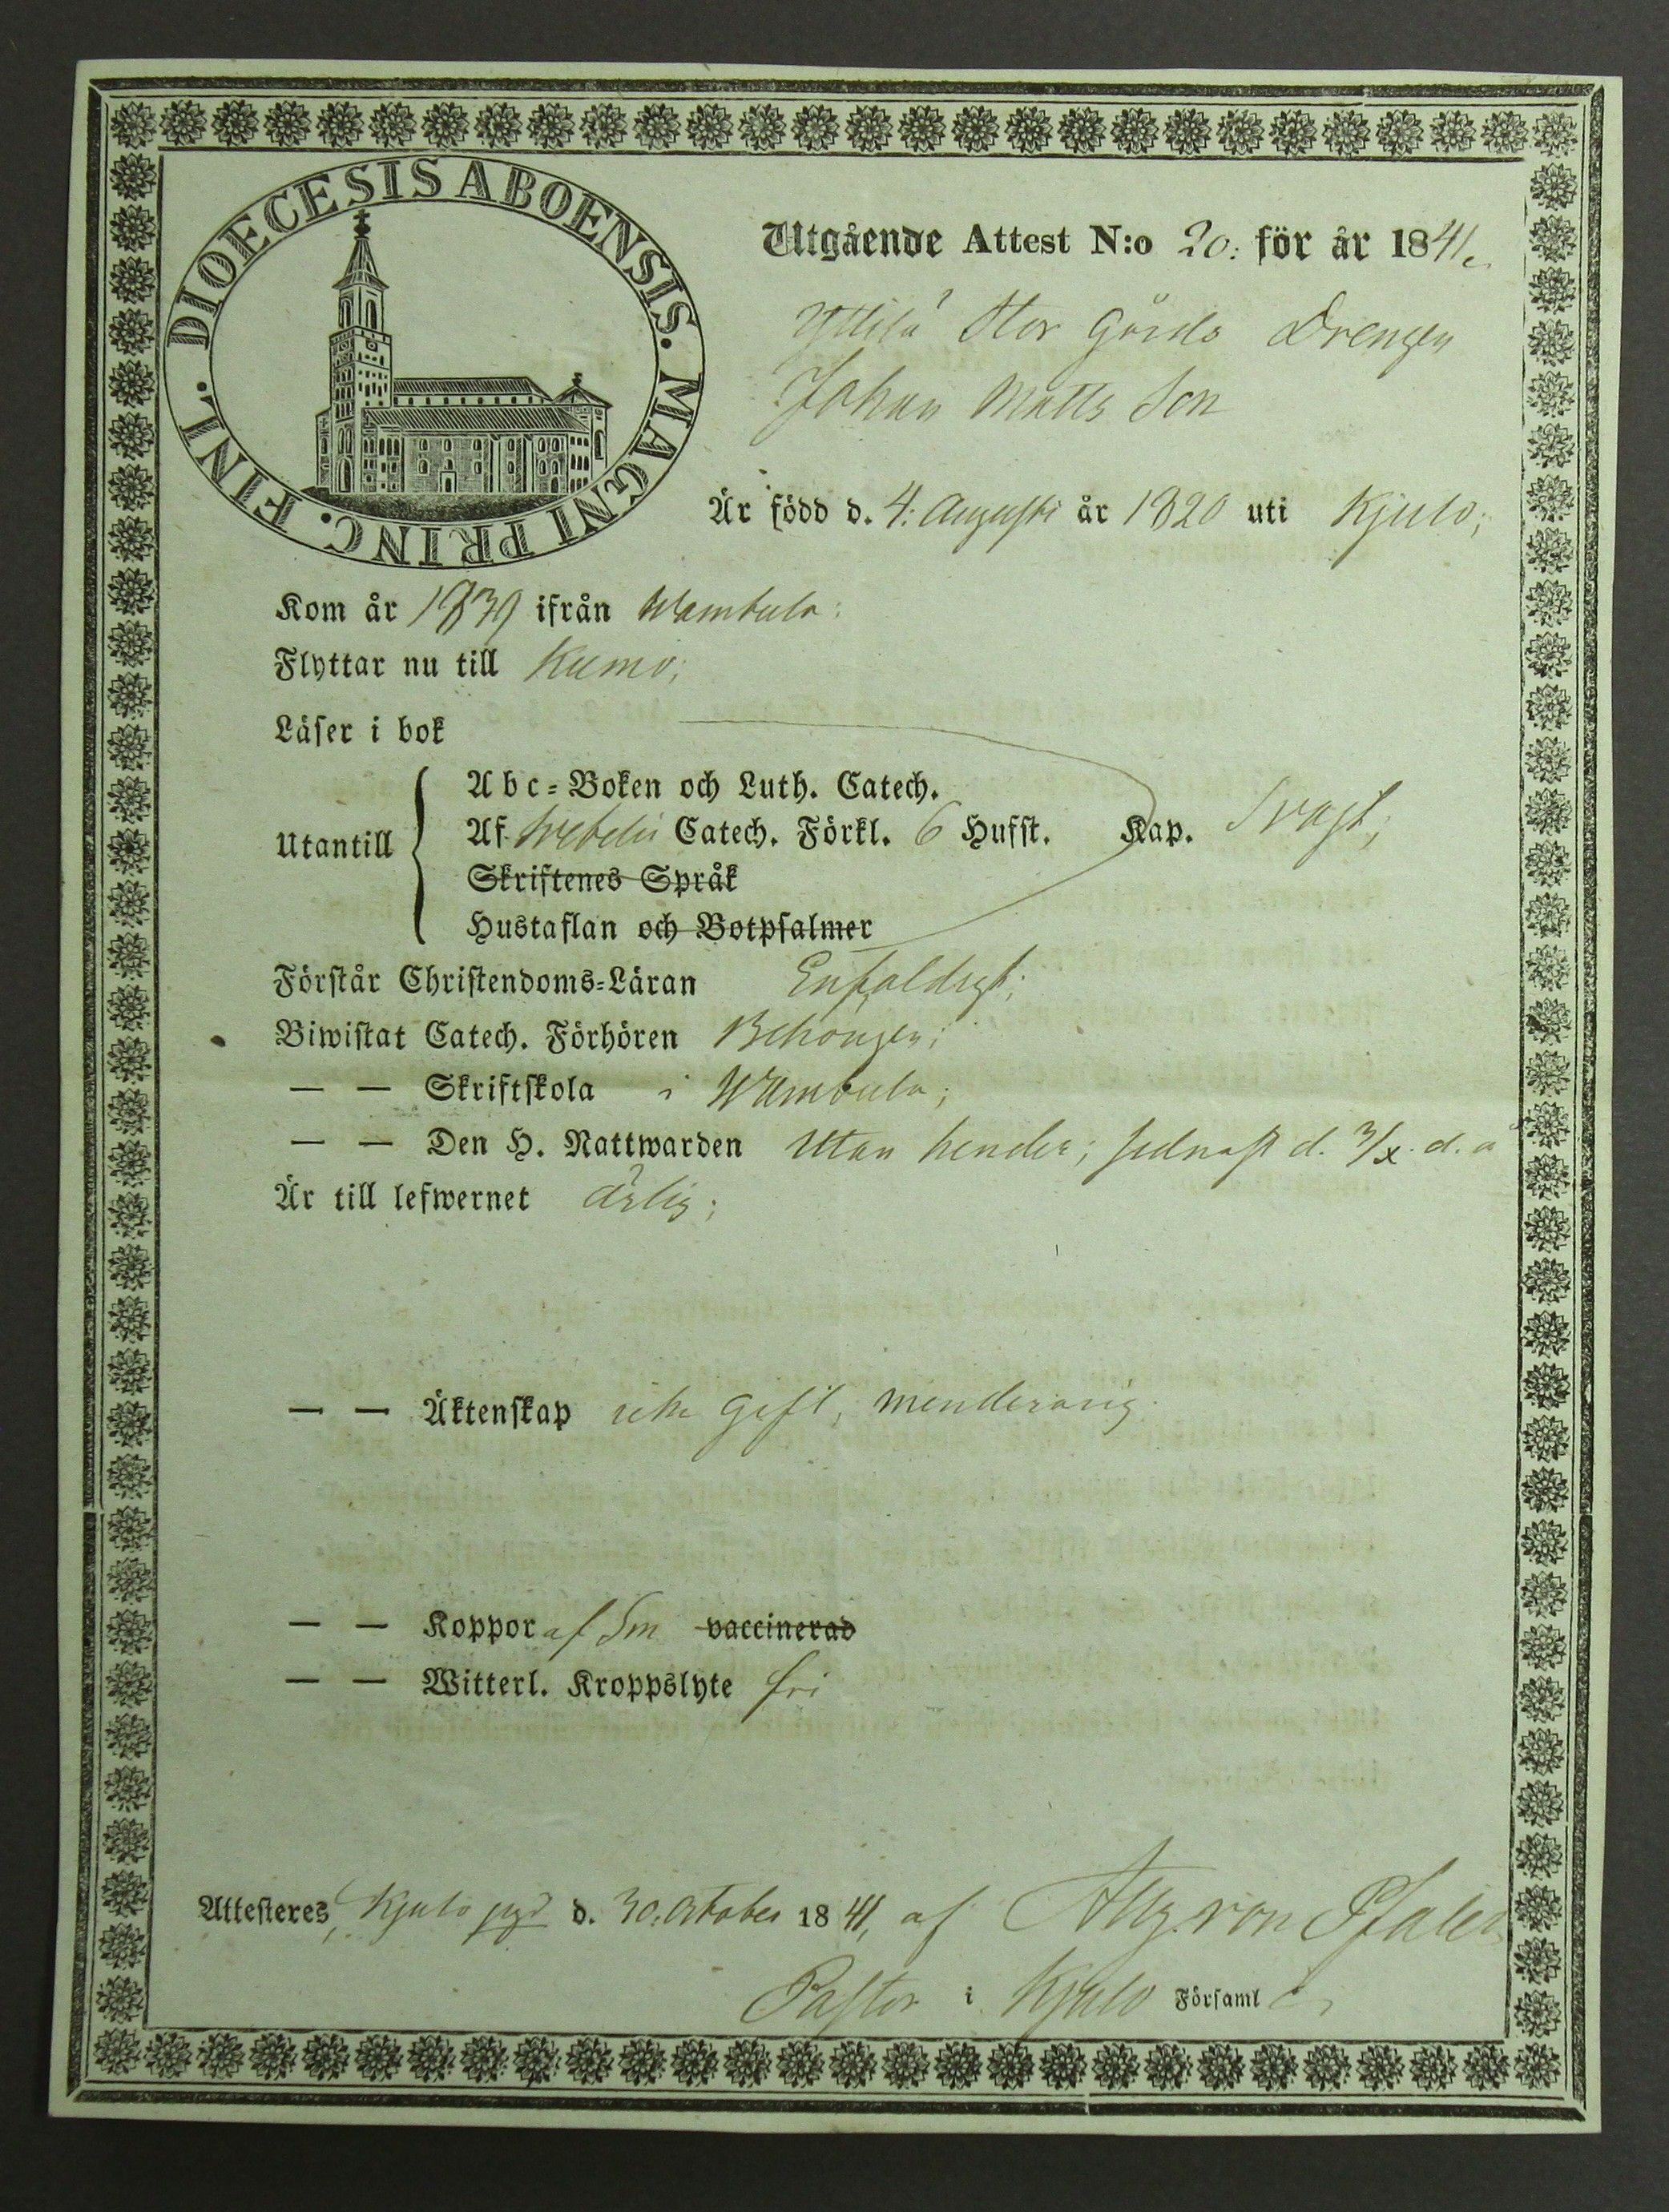 DIOECESIS ABOENSIS. MAGNI PRINC. FINL.
Utgående Attest N:o 20. för år 1841.
Yttilä Stor Gårds Drengen
Johan Matts Son
Är född d. 4. Augusti år 1820 uti Kjulo;
Kom år 1839 ifrån Wambula:
Flyttar nu till Kumo;
Läser i bok
Utantill
Abc-Boken och Luth. Catech.
Af Svebelii Catech. Förkl. 6 Hufst. Kap. Svagt;
Skriftenes Språk
Hustaflan och Botpsalmer
Förstår Christendoms-Läran Enfaldigt;
Biwistat Catech. Förhören Behörigen;
— — Skriftskola i Wambula;
— — Den H. Nattwarden Utan hinder; sednast d. 3/x. d. å
Är till lefwernet ärlig;
— — Äktenskap icke gift, minderårig.
— — Koppor af Sm vaccinerad
— — Witterl. Kroppslyte fri
Attesteres, Kjulo d. 30. October 1841, af von Pfaler
Pastor i Kjulo Församl